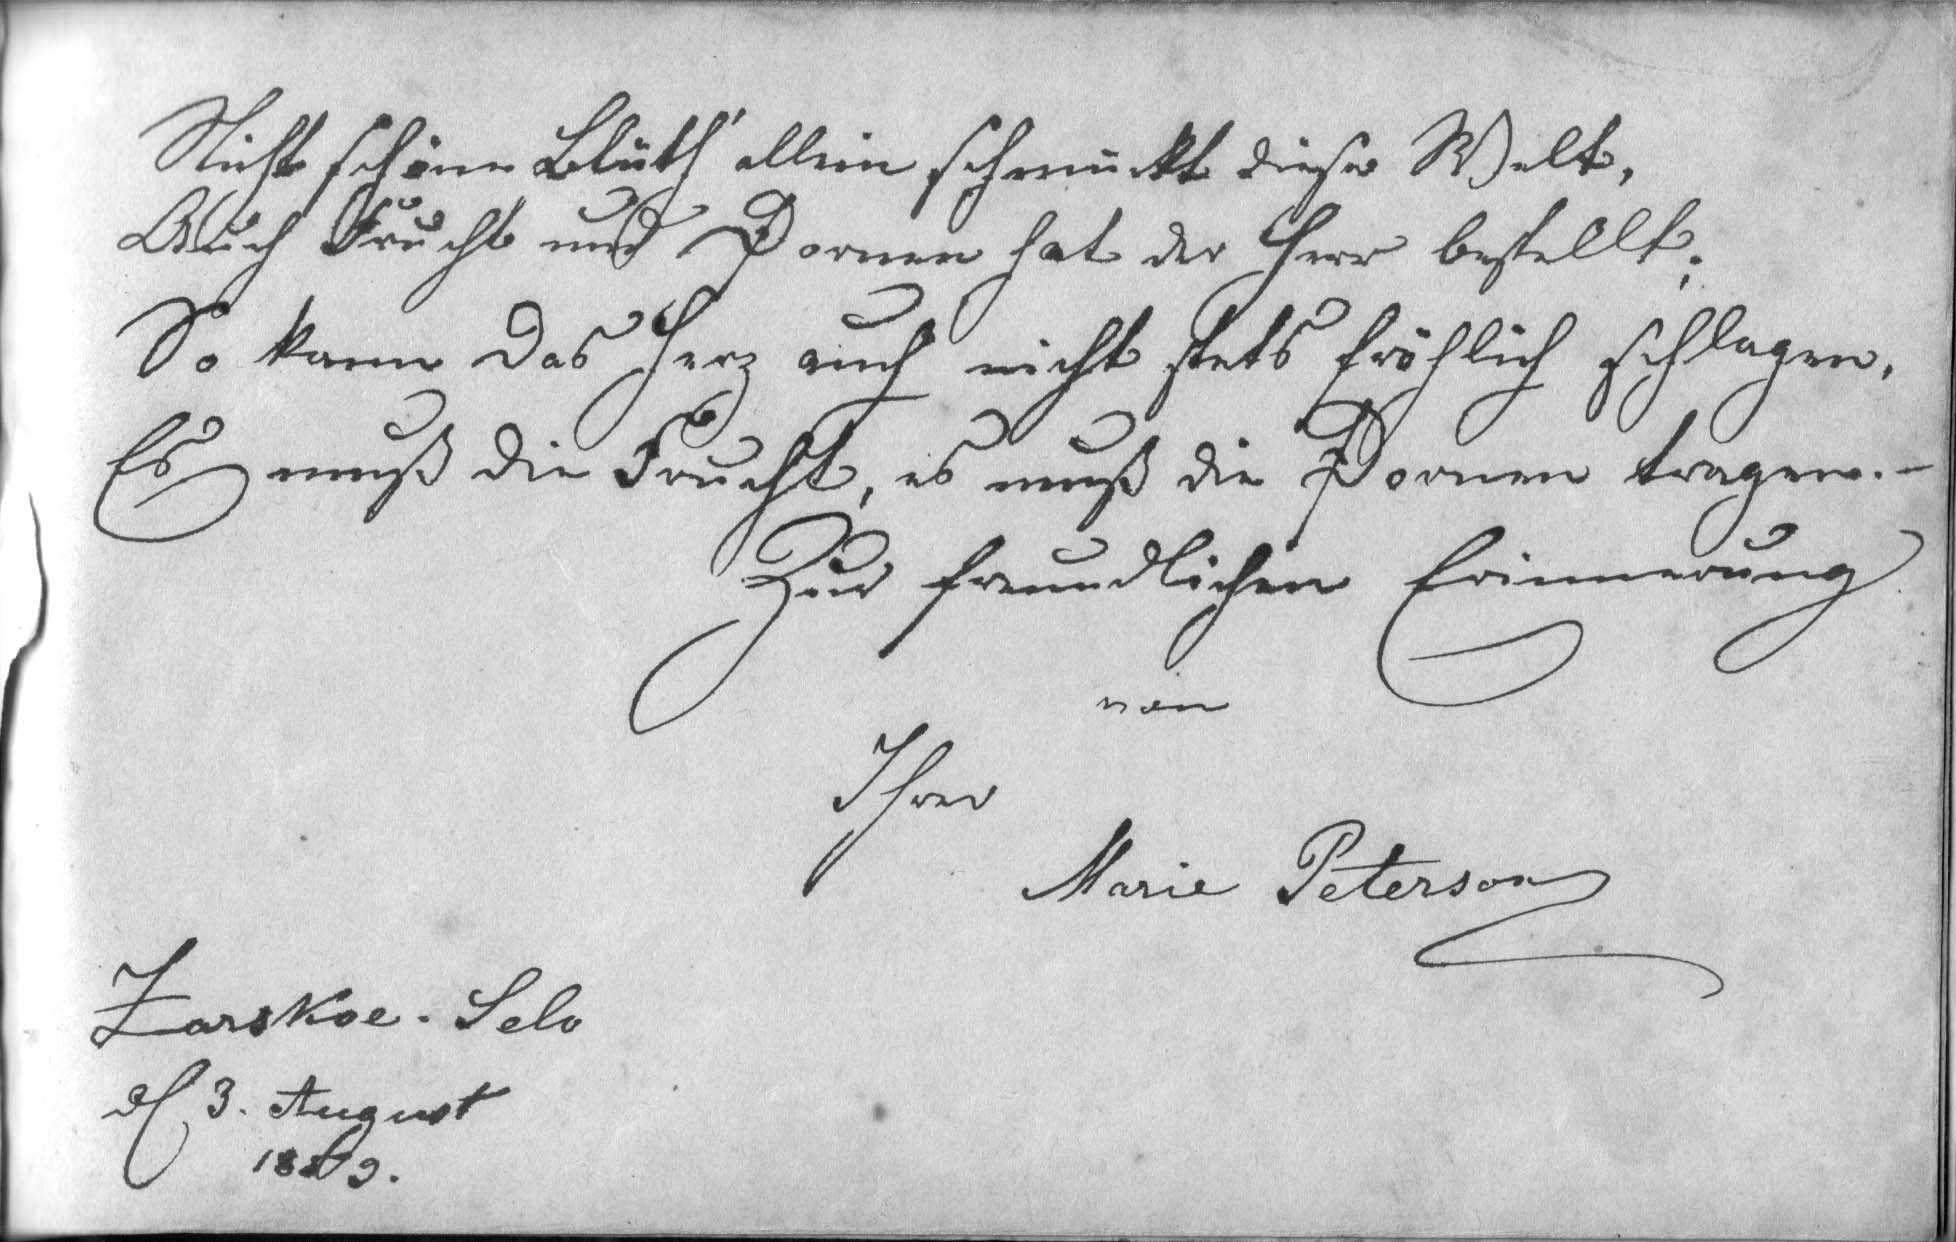 Nicht schöne Blüth' allein schmückt diese Welt,
Auch Frucht und Dornen hat der Herr bestellt;
So kann das Herz auch nicht stets fröhlich schlagen,
Es muß die Frucht, es muß die Dornen tragen. –
Zur freundlichen Erinnerung
von
Ihrer
Marie Peterson
Zarskoe-Selo
d. 3. August